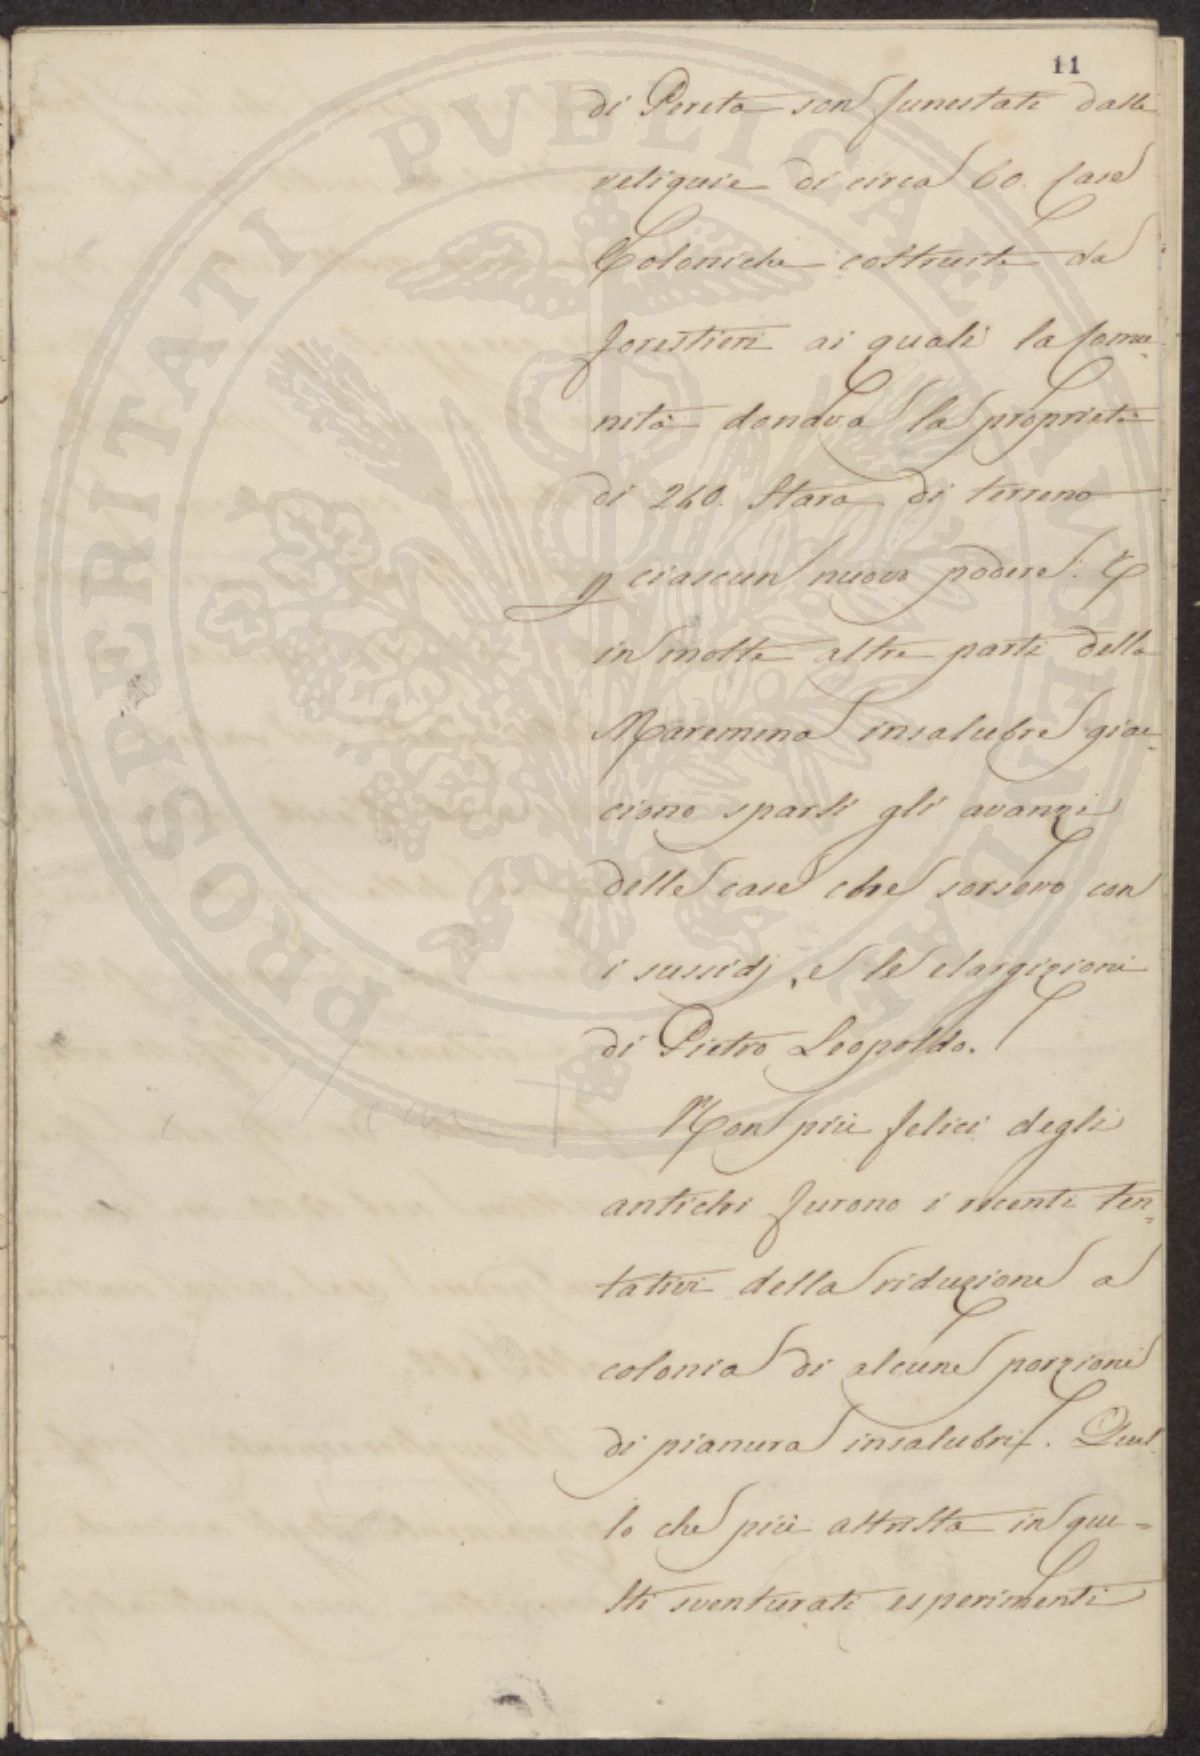 11
di Pereta son funestate dalle
reliquie di circa 60. Case
Coloniche costruite da
forestieri ai quali la Comu-
nità donava la proprietà
di 240. Stara di terreno
p ciascun nuovo podere. E
in molte altre parti della
Maremma insalubre giac-
ciono sparsi gli avanzi
delle case che sorsero con
i sussidj, e le elargizioni
di Pietro Leopoldo.
Non più felici degli
antichi furono i recenti ten-
tativi della riduzione a
colonia di alcune porzioni
di pianura insalubri. Quel
lo che più attrista in que-
sti sventurati esperimenti
PROSPERITATI PVBLICAE AVGENDAE